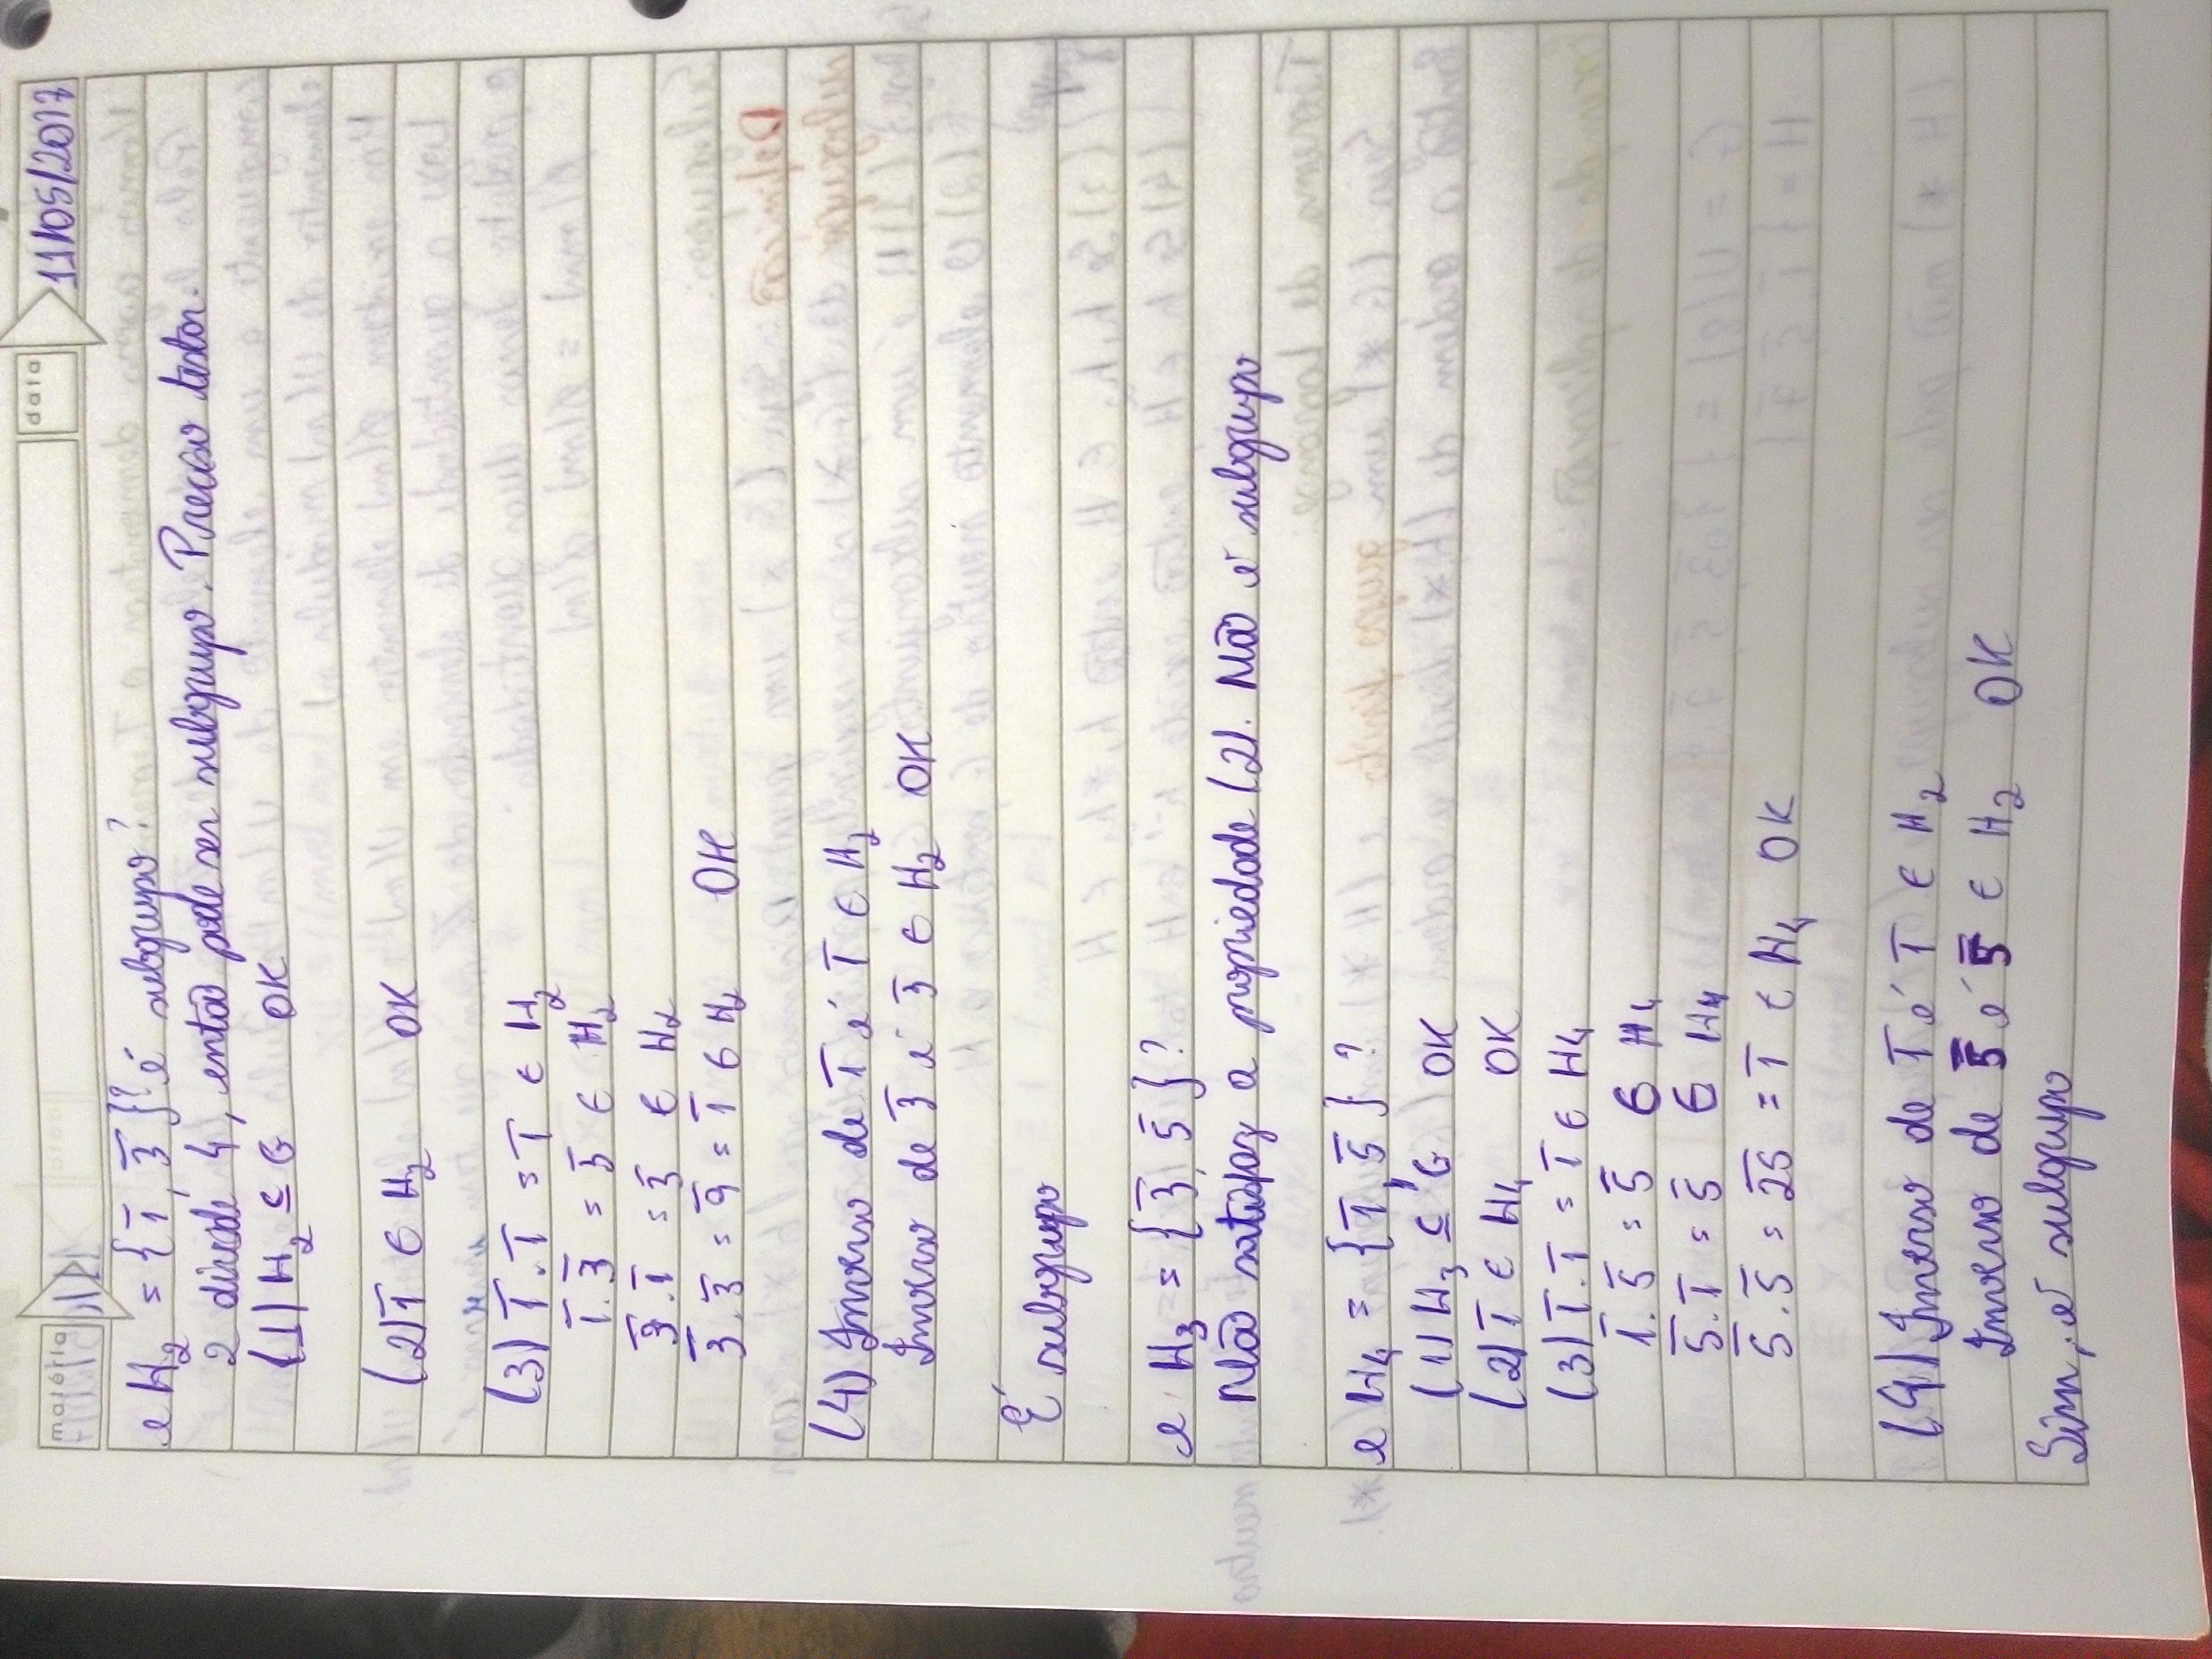 matéria data 11/05/2017
e H₂ = {1̄, 3̄}? é subgrupo?
2 divide 4, então pode ser subgrupo. Preciso testar.
(1) H₂ ⊆ G OK
(2) 1̄ ∈ H₂ OK
(3) 1̄.1̄ = 1̄ ∈ H₂
1̄.3̄ = 3̄ ∈ H₂
3̄.1̄ = 3̄ ∈ H₂
3̄.3̄ = 9̄ = 1̄ ∈ H₂ OK
(4) Inverso de 1̄ é 1̄ ∈ H₂
Inverso de 3̄ é 3̄ ∈ H₂ OK
É subgrupo
e H₃ = {3̄, 5̄}?
Não satisfaz a propriedade (2). Não é subgrupo
e H₄ = {1̄, 5̄}?
(1) H₃ ⊆ G OK
(2) 1̄ ∈ H₄ OK
(3) 1̄.1̄ = 1̄ ∈ H₄
1̄.5̄ = 5̄ ∈ H₄
5̄.1̄ = 5̄ ∈ H₄
5̄.5̄ = 2̄5̄ = 1̄ ∈ H₄ OK
(4) Inverso de 1̄ é 1̄ ∈ H₂
Inverso de 5̄ é 5̄ ∈ H₂ OK
Sim, é subgrupo